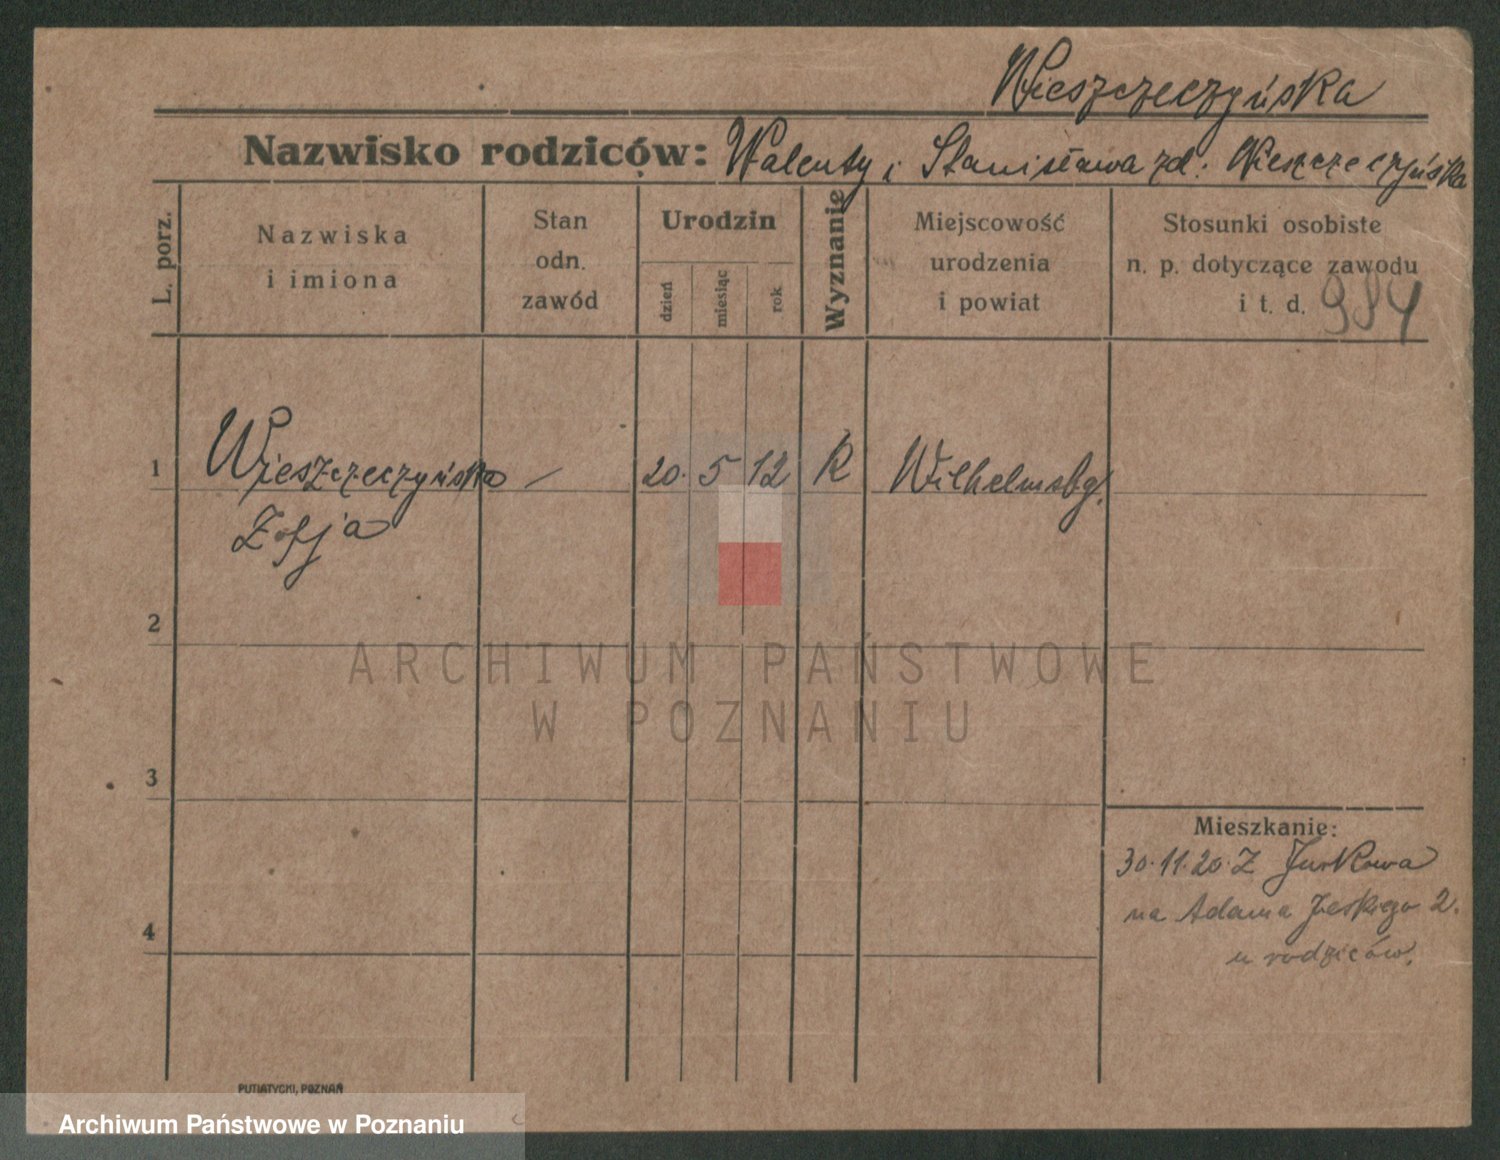 Wieszczeczyńska
Nazwisko rodziców: Walenty i Stanisława zd: Wieszczeczyńska
L. porz.
Nazwiska
i imiona
Stan
odn.
zawód
Urodzin
dzień
miesiąc
rok
Wyznanie
Miejscowość
urodzenia
i powiat
Stosunki osobiste
n. p. dotyczące zawodu
i t. d. 984
1 Wieszczeczyńska — 20. 5 12 R Wilhelmsbg.
Zofja
2
3
4
Mieszkanie:
30.11.20. Z Jurkowa
na Adama 2.
u rodziców.
PUTIATYCKI, POZNAŃ
ARCHIWUM PAŃSTWOWE
W POZNANIU
Archiwum Państwowe w Poznaniu